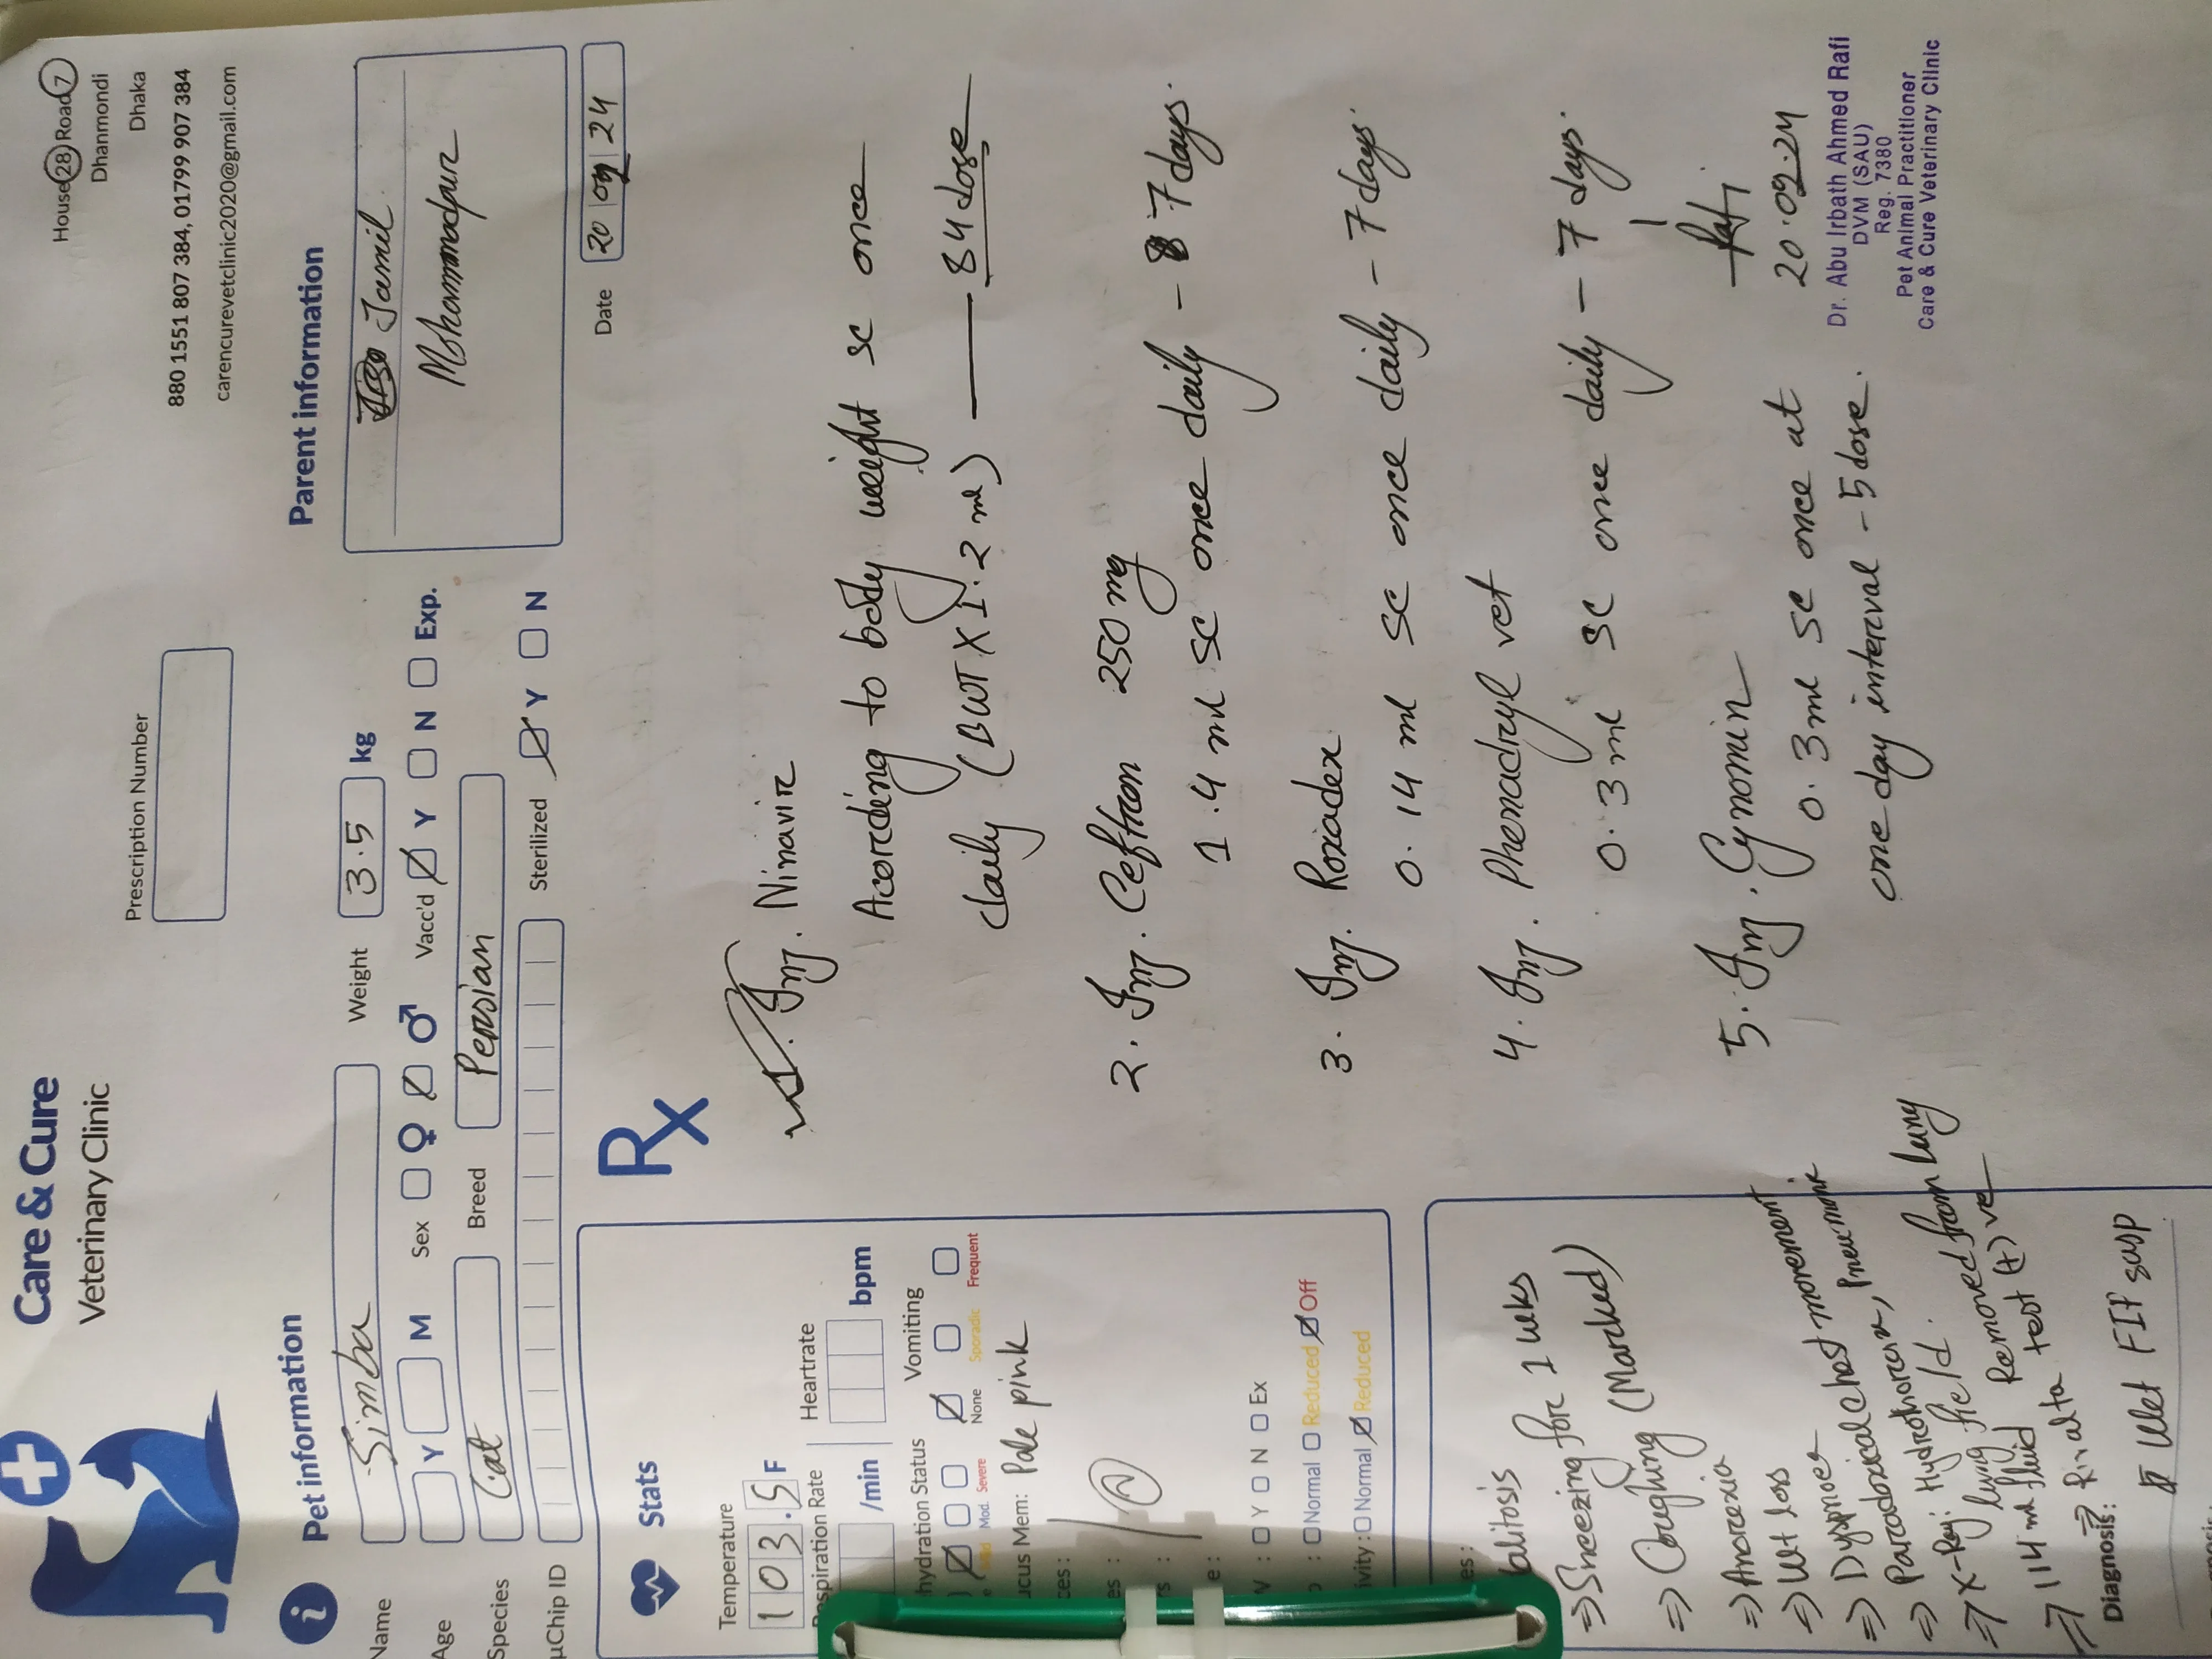 Care & Cure
Veterinary Clinic
Prescription Number
House 28 Road 7
Dhanmondi
Dhaka
880 1551 807 384, 01799 907 384
carencurevetclinic2020@gmail.com
i Pet information
Name Simba
Weight 3.5 kg
Age Y M
Sex ♀ ♂
Vacc'd Y N Exp.
Species Cat
Breed Persian
µChip ID
Sterilized Y N
Parent information
Jamil
Mohammadpur
Date 20 09 24
Stats
Temperature
103.5 F
Respiration Rate
/min
Heartrate
bpm
hydration Status
Mod. Severe
Vomiting
None Sporadic Frequent
ucus Mem: Pale pink
: Y N Ex
: Normal Reduced Off
ivity: Normal Reduced
⇒ Sneezing for 2 wks
⇒ Coughing (Marked)
⇒ Anorexia
⇒ Wt loss
⇒ Dyspnoea
⇒ Paradoxical chest movement
⇒ Hydrothorax, Pneumonia
⇒ X-Ray: lung field.
⇒ 114 ml fluid Removed from lung
⇒ Rivalta test (+) ve
Diagnosis:
Wet FIP susp
Rx
1. Inj. Ninavir
Acording to body weight sc once
daily (BWT X 1.2 ml) — 84 dose
2. Inj. Ceftron 250 mg
1.4 ml sc once daily - 7 days.
3. Inj. Roxadex
0.14 ml sc once daily - 7 days.
4. Inj. Phenadryl vet
0.3 ml sc once daily - 7 days.
5. Inj. Cynomin
0.3 ml sc once at
one day interval - 5 dose.
Rafi
20.09.24
Dr. Abu Irbath Ahmed Rafi
DVM (SAU)
Reg. 7380
Pet Animal Practitioner
Care & Cure Veterinary Clinic